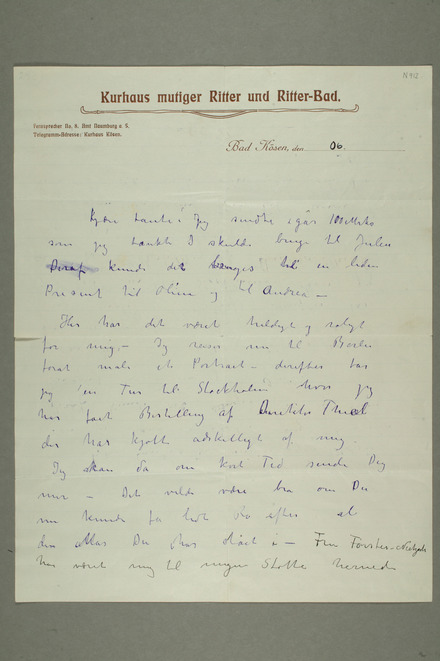 N 912
Kurhaus mutiger Ritter und Ritter-Bad.
Fernsprecher No. 6. Amt Naumburg a. S.
Telegramm-Adresse: Kurhaus Kösen.
Bad Kösen, den 06.
Kjære Tante! Jeg sendte igår 100 Mk
som jeg tænkte I skulde bruge til Julen
Deraf kunde det bruges til en liden
Present til Oline og til Andrea —
Her har det været heldigt og roligt
for mig. — Jeg reiser nu til Berlin
forat male et Portræt — derefter tar
jeg en Tur til Stockholm hvor jeg
har faat Bestilling af Thiel
der har kjøbt adskilligt af mig
Jeg skal da om kort Tid sende Dig
mer — Det vilde være bra om Du
nu kunde få lidt efter al
den Du har i — Fru Förster-Nietzsche
har været mig til megen Støtte hernede